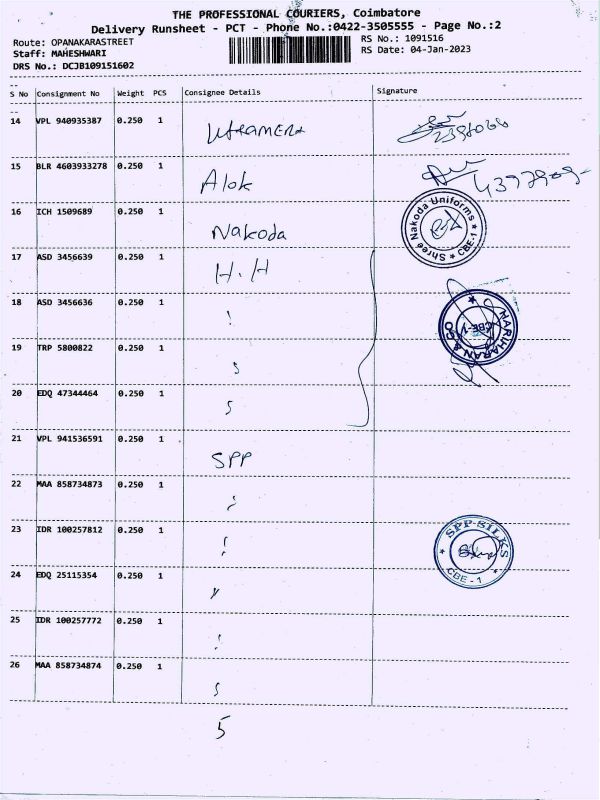 THE PROFESSIONAL COURIERS, Coimbatore
Delivery Runsheet - PCT - Phone No.:0422-3505555 - Page No.:2
Route: OPANAKARASTREET
RS No.: 1091516
Staff: MAHESHWARI
RS Date: 04-Jan-2023
DRS No.: DCJB109151602
S No Consignment No Weight PCS Consignee Details Signature
14 VPL 940935387 0.250 1
15 BLR 4603933278 0.250 1 Alok
16 ICH 1509689 0.250 1 Nakoda
Shree Nakoda Uniforms
* CBE-1 *
17 ASD 3456639 0.250 1 H.H
18 ASD 3456636 0.250 1
HARIHARAN & CO
CBE-1
19 TRP 5800822 0.250 1
20 EDQ 47344464 0.250 1
21 VPL 941536591 0.250 1 SPP
22 MAA 858734873 0.250 1
23 IDR 100257812 0.250 1
SPP SILKS
CBE - 1
24 EDQ 25115354 0.250 1
25 IDR 100257772 0.250 1
26 MAA 858734874 0.250 1
5